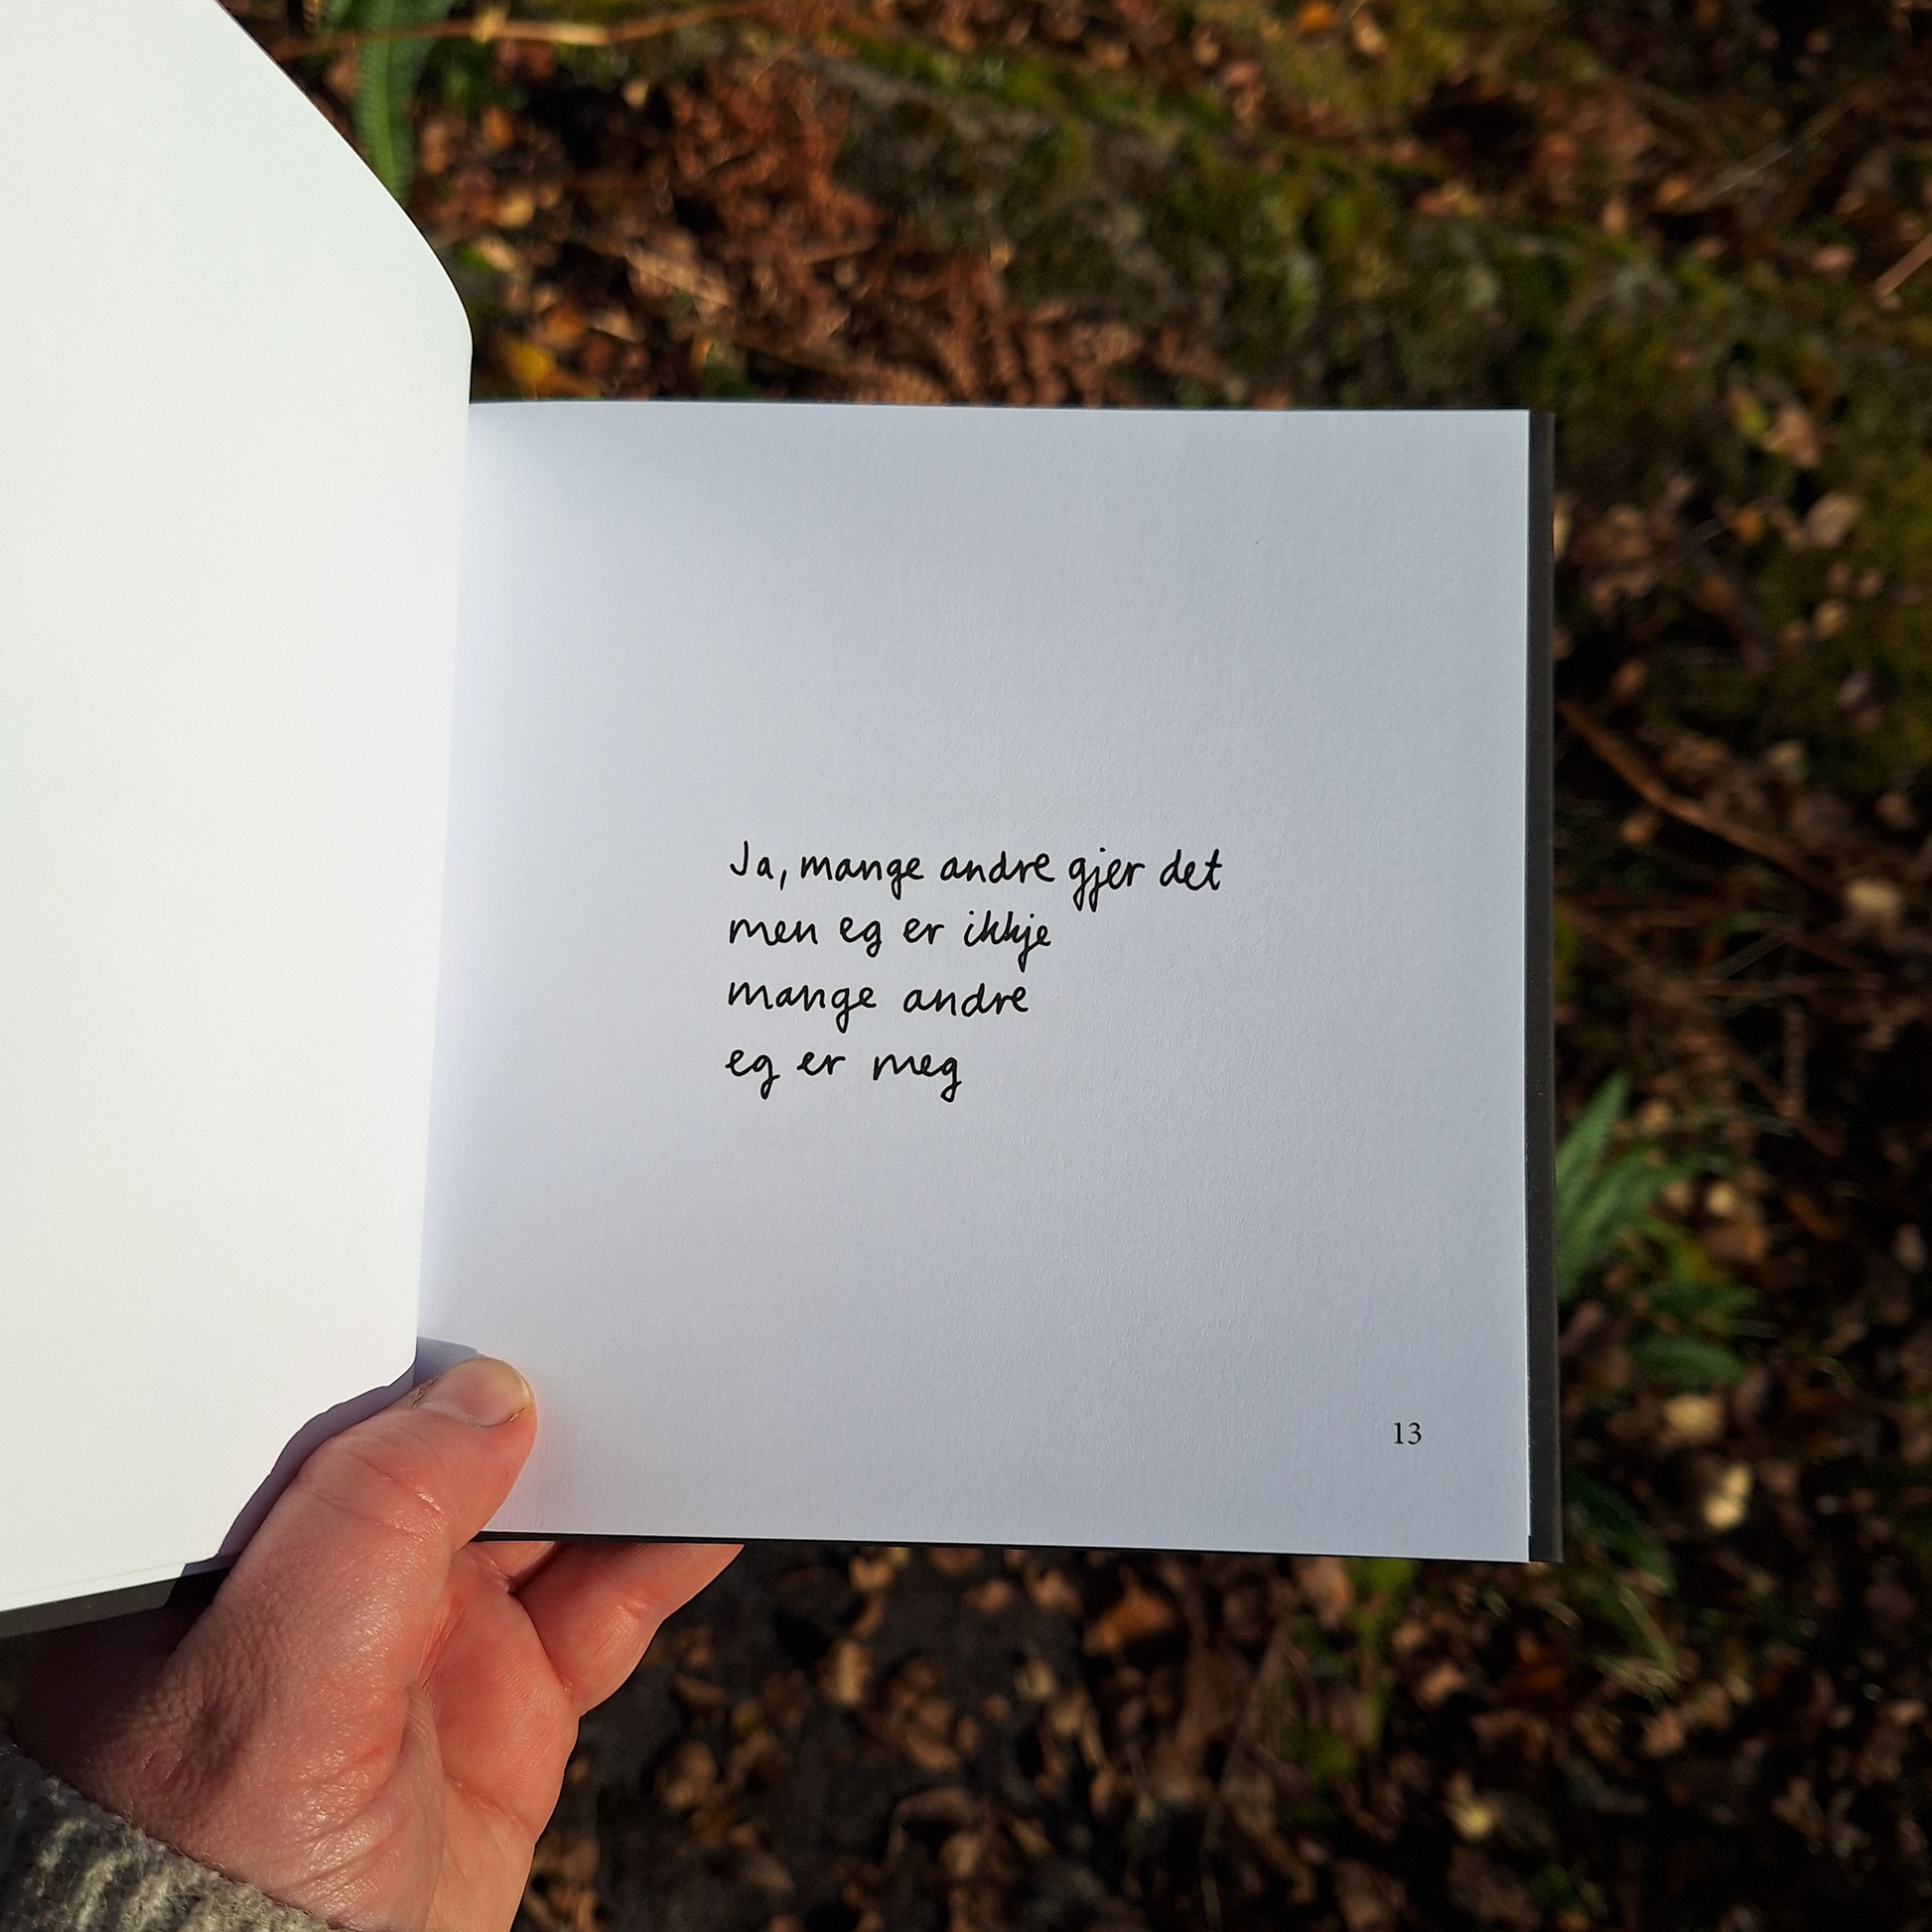 Ja, mange andre gjer det
men eg er ikkje
mange andre
eg er meg
13